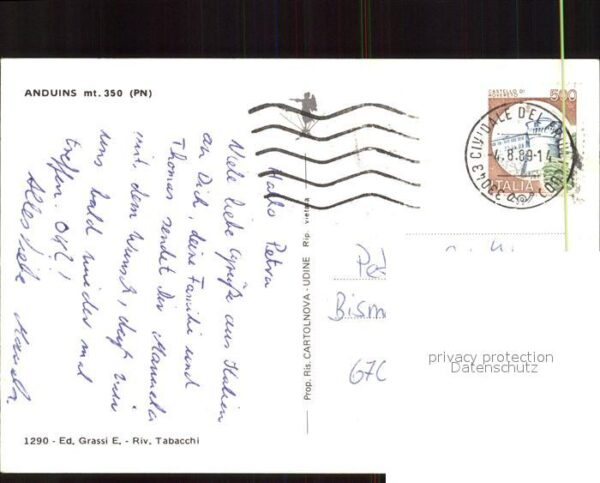 ANDUINS mt. 350 (PN)
Hallo Petra
Viele liebe Grüße aus Italien
an Dich, deine Familie und
Thomas sendet Dir Manuela
mit dem Wunsch, daß wir
uns bald wieder mal
treffen. Ok?!
Alles Liebe Manuela
1290 - Ed. Grassi E. - Riv. Tabacchi
Prop. Ris. CARTOLNOVA - UDINE Rip. vietata
CASTELLO DI
ROVERETO
500
ITALIA
33043 CIVIDALE DEL
4.8.89-14
Bism
670
privacy protection
Datenschutz